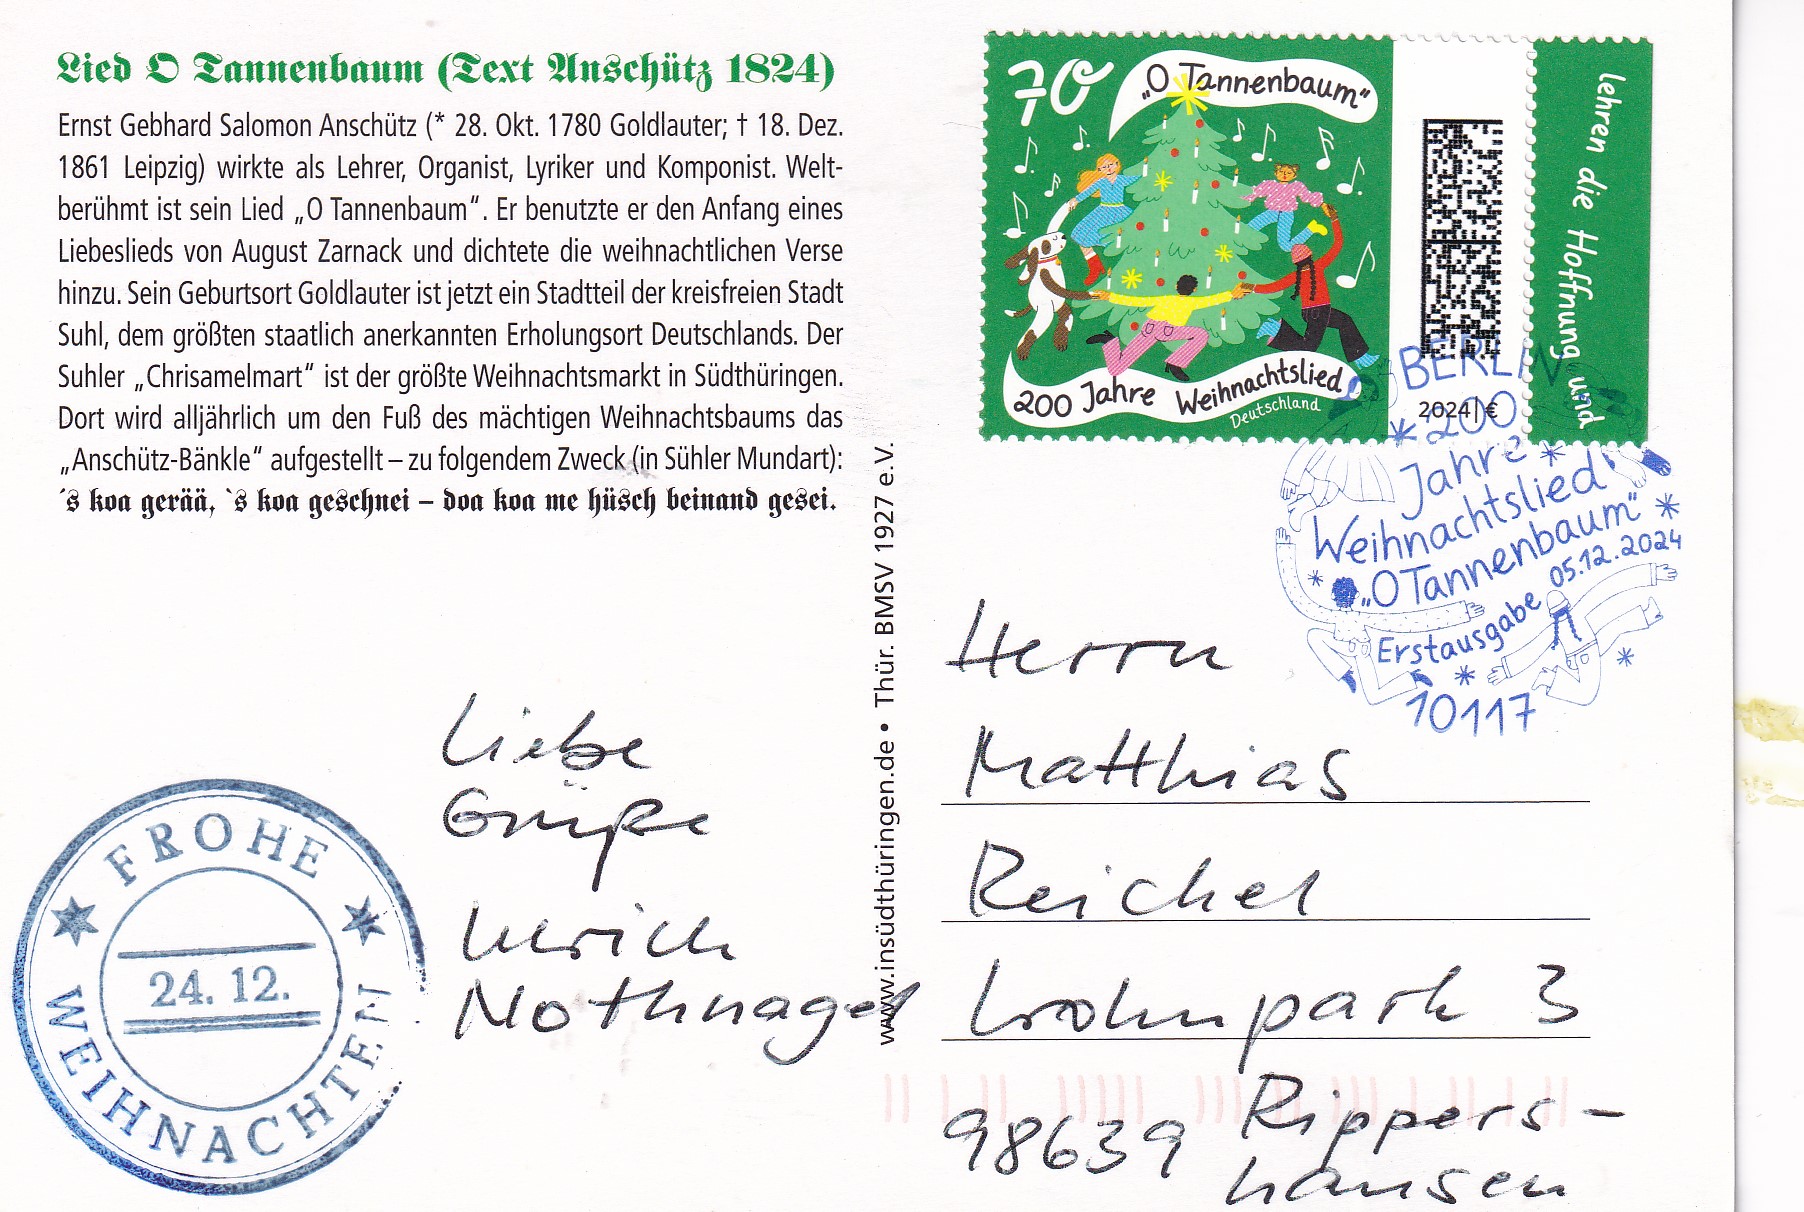 Lied O Tannenbaum (Text Anschütz 1824)
Ernst Gebhard Salomon Anschütz (* 28. Okt. 1780 Goldlauter; † 18. Dez.
1861 Leipzig) wirkte als Lehrer, Organist, Lyriker und Komponist. Welt-
berühmt ist sein Lied „O Tannenbaum“. Er benutzte er den Anfang eines
Liebeslieds von August Zarnack und dichtete die weihnachtlichen Verse
hinzu. Sein Geburtsort Goldlauter ist jetzt ein Stadtteil der kreisfreien Stadt
Suhl, dem größten staatlich anerkannten Erholungsort Deutschlands. Der
Suhler „Chrisamelmart“ ist der größte Weihnachtsmarkt in Südthüringen.
Dort wird alljährlich um den Fuß des mächtigen Weihnachtsbaums das
„Anschütz-Bänkle“ aufgestellt – zu folgendem Zweck (in Sühler Mundart):
´s koa gerää, `s koa geschnei – doa koa me hüsch beinand gesei.
Liebe
Grüße
Ulrich
Nothnagel
FROHE
24. 12.
WEIHNACHTEN
www.insüdthüringen.de • Thür. BMSV 1927 e.V.
70
„O Tannenbaum“
200 Jahre Weihnachtslied
Deutschland
2024 €
lehren die Hoffnung und
BERLIN
200
Jahre
Weihnachtslied
„O Tannenbaum“
05.12.2024
Erstausgabe
10117
Herrn
Matthias
Reichel
Wohnpark 3
98639 Rippers-
hausen